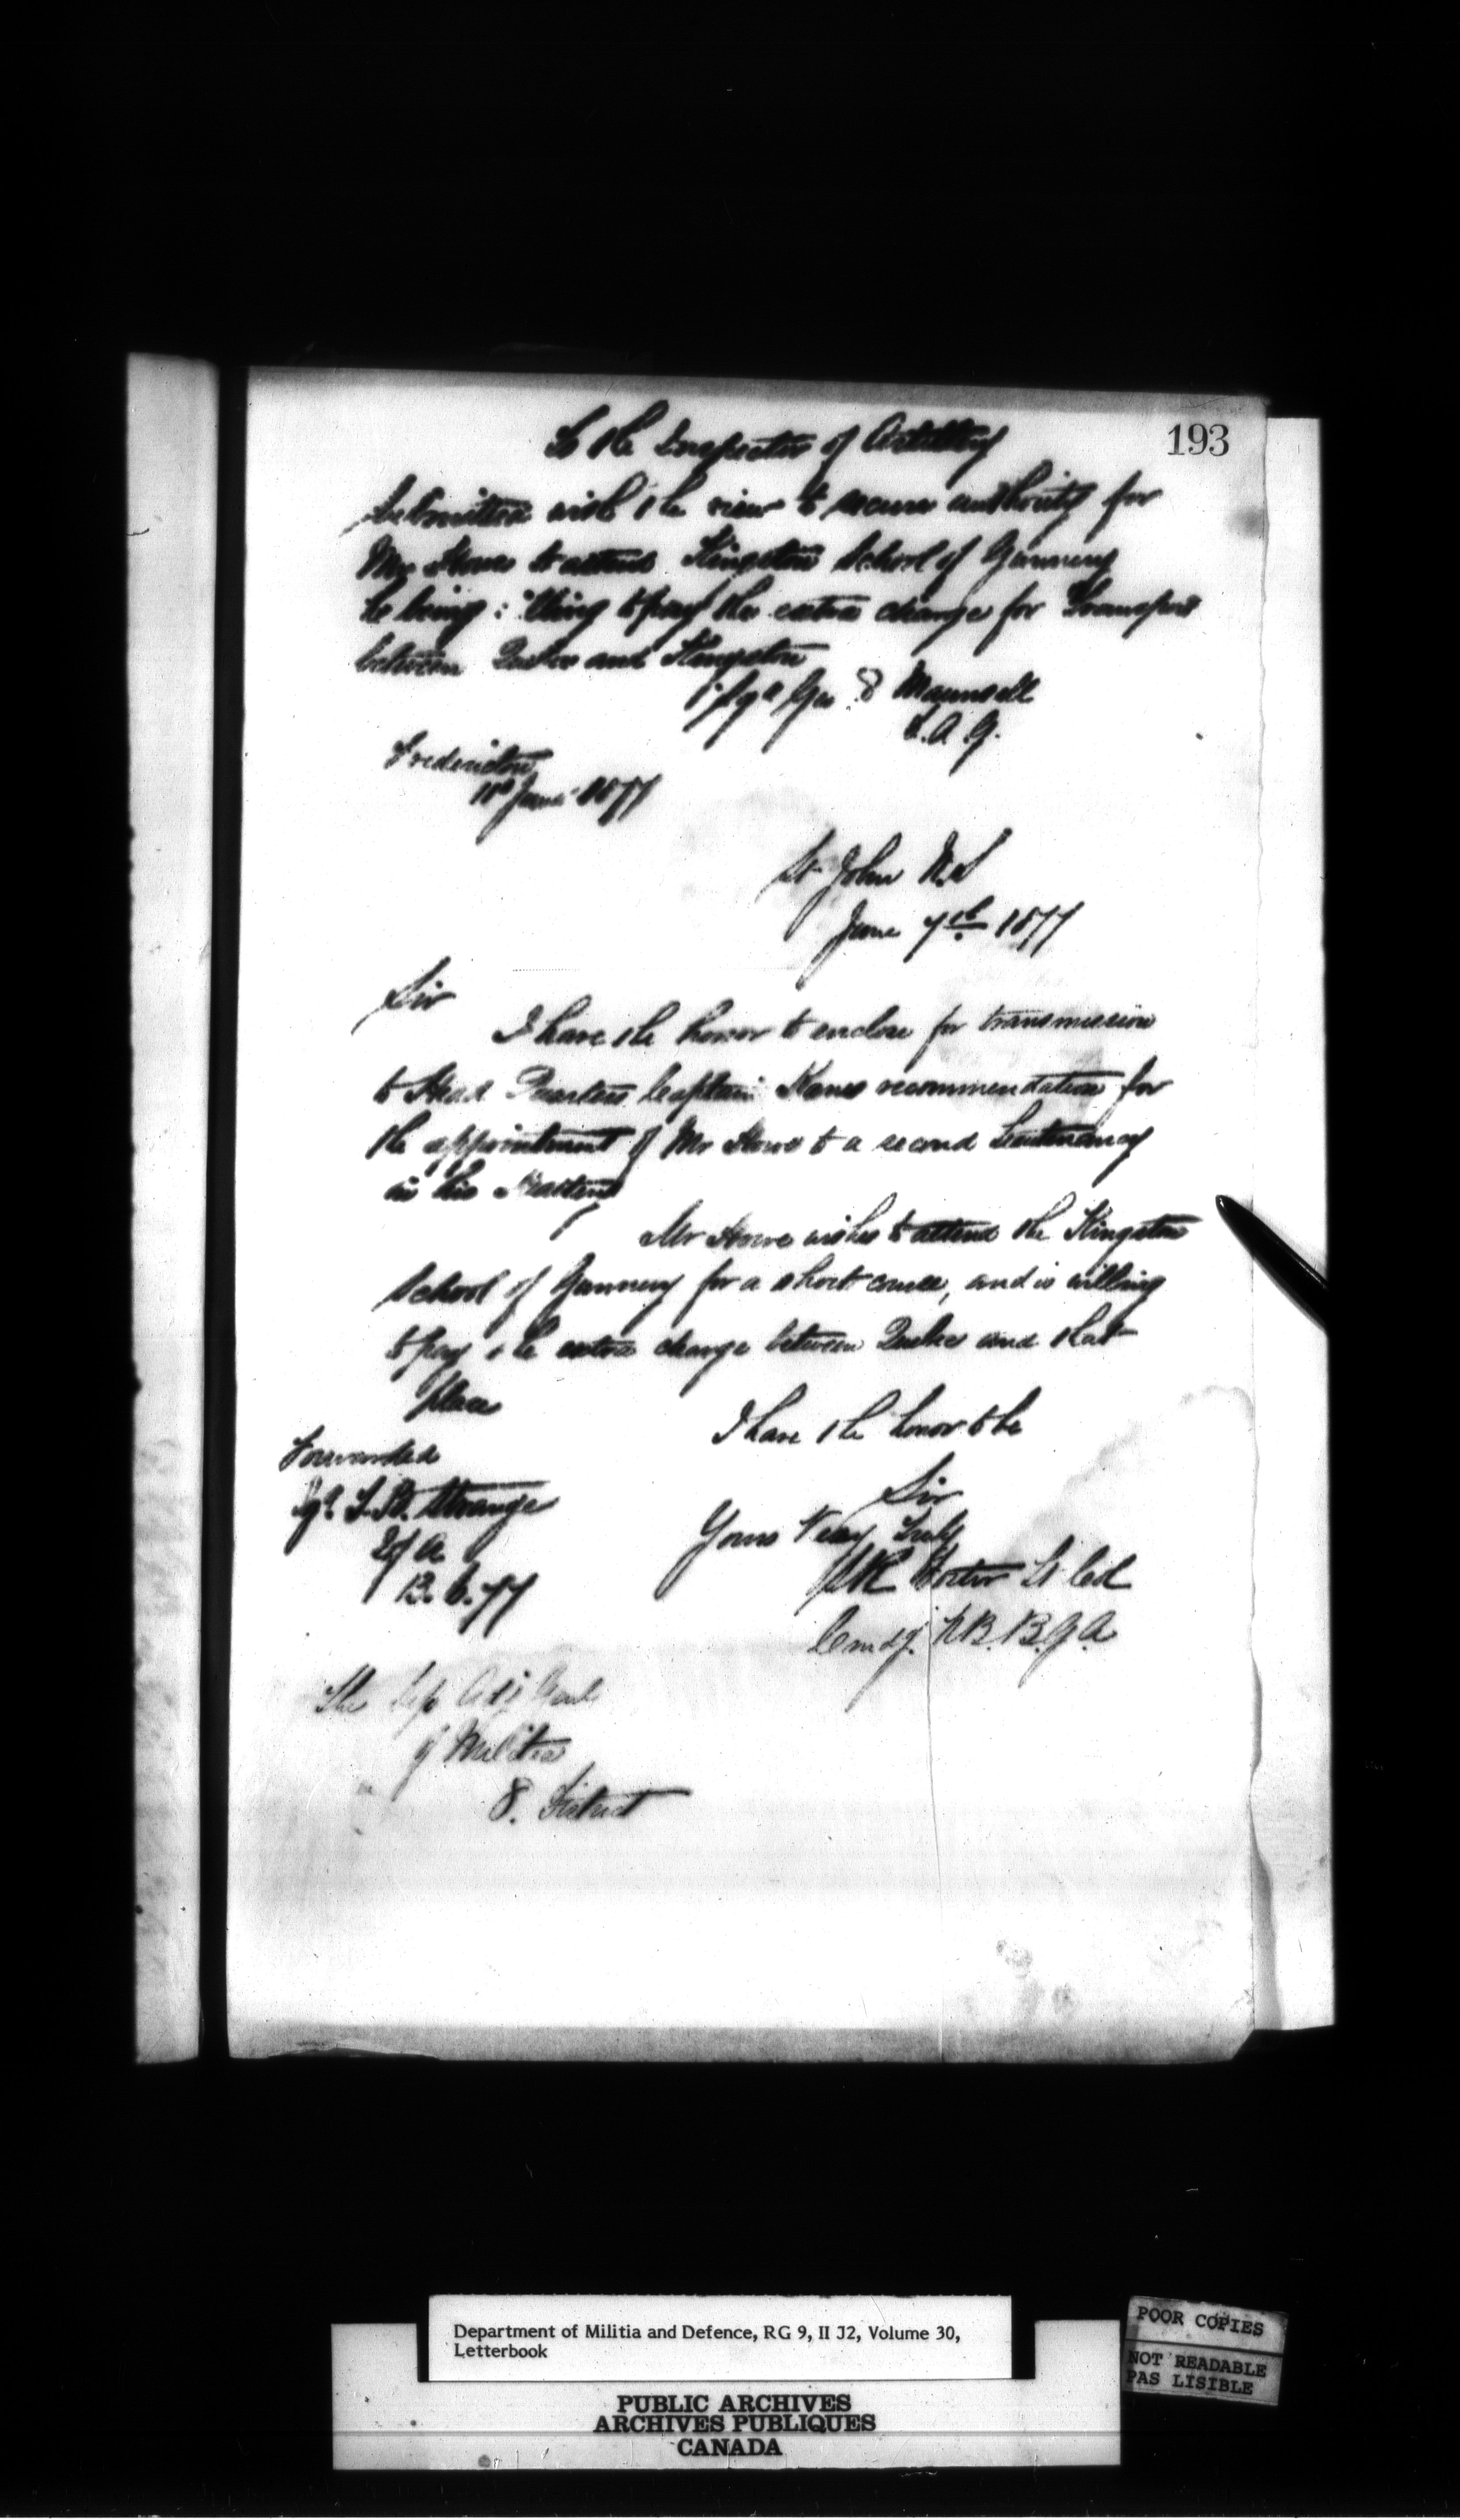 193
To the Inspector of Artillery
Submitted with the view to secure authority for
Mr Howe to attend Kingston School of Gunnery
he being willing to pay the extra charge for Transport
between Quebec and Kingston
Sgd Geo J Maunsell
D.A.G.
Fredericton
11th June 1877
St John N.B
June 7th 1877
Sir
I have the honor to enclose for transmission
to Head Quarters Captain Kanes recommendation for
the appointment of Mr Howe to a second Lieutenancy
in his Battery
Mr Howe wishes to attend the Kingston
School of Gunnery for a short course, and is willing
to pay the extra charge between Quebec and that
place
I have the honor to be
Sir
Yours Very Truly
S.K. Foster Lt Col
Comdg. N.B. B.G.A
Forwarded
Sgd. T.B. Strange
I of A
13.6.77
The Dep Adj Genl
of Militia
8. District
Department of Militia and Defence, RG 9, II J2, Volume 30,
Letterbook
PUBLIC ARCHIVES
ARCHIVES PUBLIQUES
CANADA
POOR COPIES
NOT READABLE
PAS LISIBLE